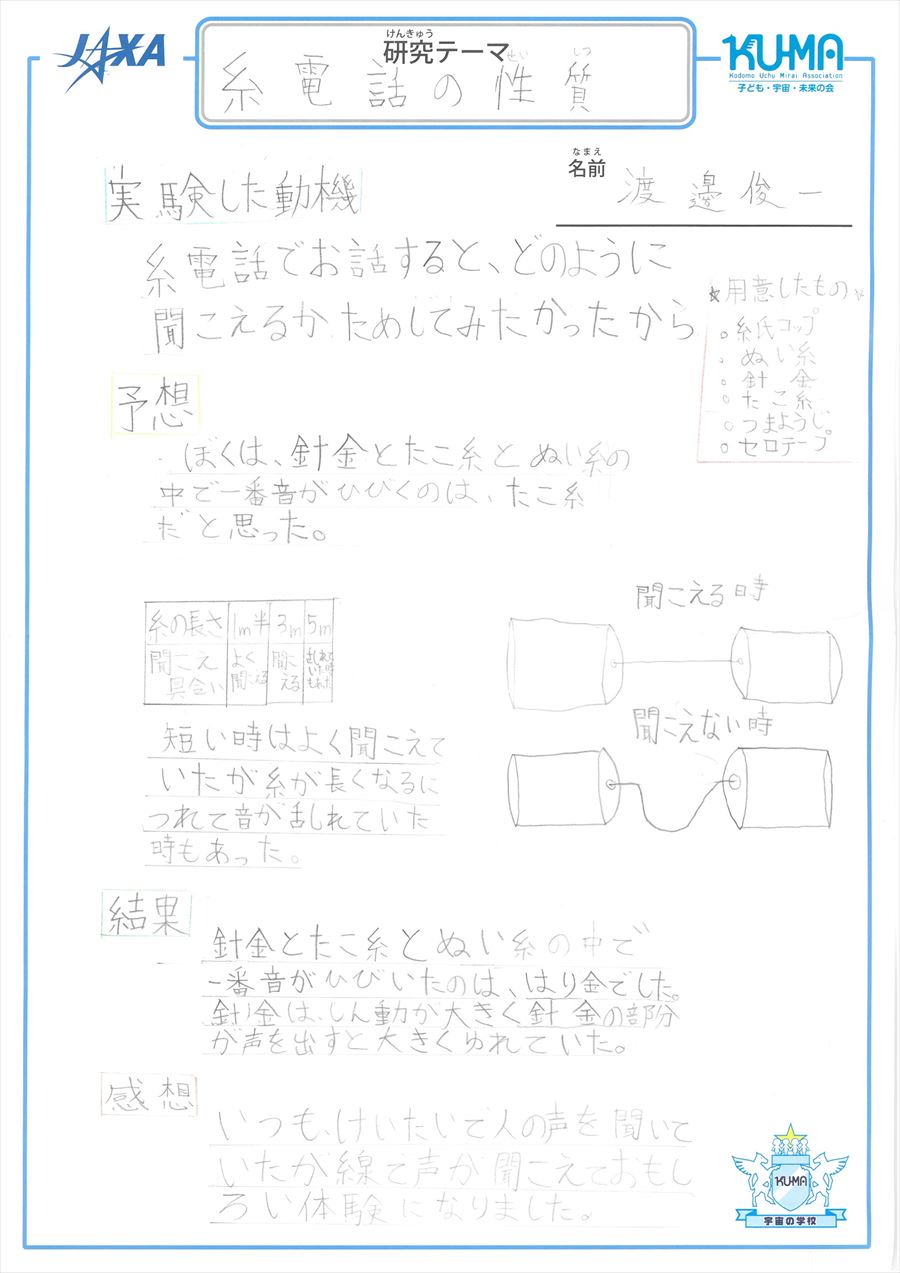 JAXA
けんきゅう
研究テーマ
KU-MA
Kodomo Uchu Mirai Association
子ども・宇宙・未来の会
せい しつ
糸電話の性質
なまえ
名前
渡邊俊一
実験した動機
糸電話でお話すると、どのように
聞こえるか ためしてみたかったから
★用意したもの☆
○紙コップ
○ぬい糸
○針金
○たこ糸
○つまようじ。
○セロテープ
予想
ぼくは、針金とたこ糸とぬい糸の
中で一番音がひびくのは、たこ糸
だと思った。
糸の長さ 1m半 3m 5m
聞こえ具合い よく聞こえる 聞こえる 乱れていた時もあった
聞こえる時
聞こえない時
短い時はよく聞こえて
いたが糸が長くなるに
つれて音が乱れていた
時もあった。
結果
針金とたこ糸とぬい糸の中で
一番音がひびいたのは、はり金でした。
針金は、しん動が大きく針金の部分
が声を出すと大きくゆれていた。
感想
いつも、けいたいで人の声を聞いて
いたが線で声が聞こえておもし
ろい体験になりました。
KU-MA
宇宙の学校